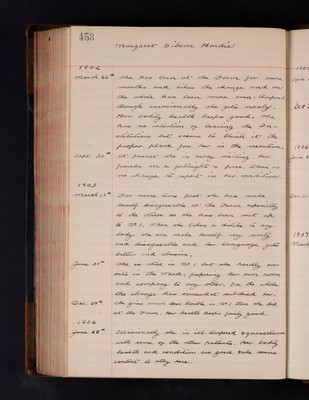 453
Margaret Gibson Hardie
1902
March 26th She has been at the Farm for some
months and likes the change and on
the whole has been more even-tempered
though occasionally she gets nasty.
Her bodily health keeps good. She
has no intention of leaving the In-
stitution but seems to think it the
proper place for her in the meantime.
Sept. 30th At present she is away visiting her
friends on a fortnight's pass. There is
no change to report in her condition.
1903
March 17th For some time past she has made
herself disagreeable at the Farm especially
to the Nurse so she has been sent up
to When she takes a dislike to any
body she can make herself very nasty
and disagreeable and her language gets
bitter and obscene.
June 30th She is still in but she hardly ever
sits in the Ward; preferring her own room
and company to any other. On the whole
the change has somewhat subdued her.
Dec. She gives much less trouble in than she did
at the Farm. Her health keeps fairly good.
1904
June 28th Occasionally she is ill-tempered & quarrelsome
with some of the other patients. Her bodily
health and condition are good & she seems
content to stay here.
1905
1906
1907